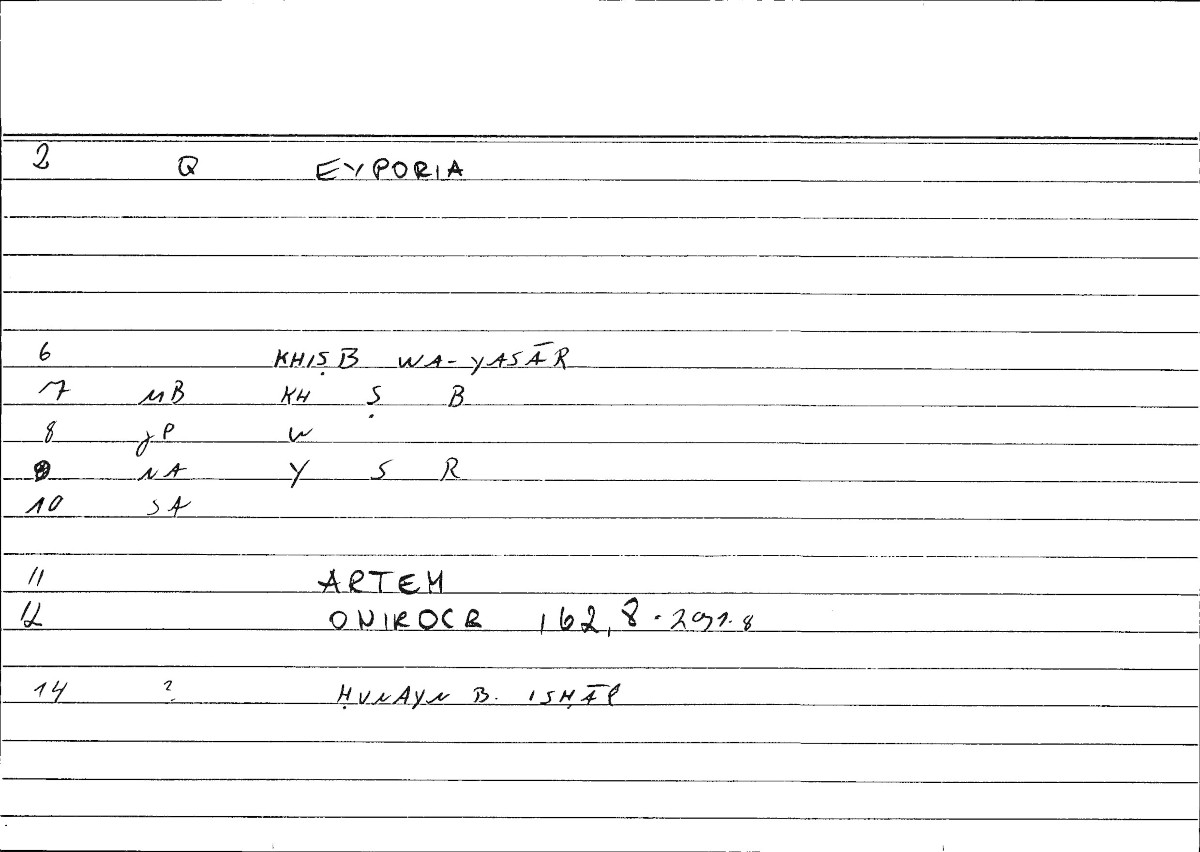 2 Q EYPORIA
6 KHIṢB WA-YASĀR
7 MB KH Ṣ B
8 JP W
9 NA Y S R
10 SA
11 ARTEM
12 ONIROCR 162,8 .
14 ? ḤUNAYN B. ISḤĀQ